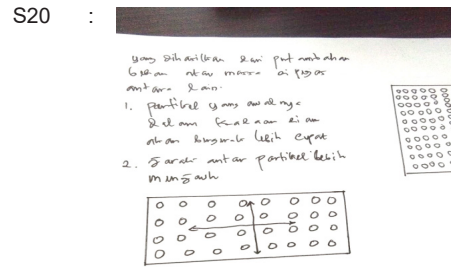 S20 :
yang dihasilkan dari pertambahan
beban atau massa di piston
antara lain.
1. partikel yang awalnya
dalam keadaan diam
akan bergerak lebih cepat
2. Jarak antar partikel lebih
menjauh